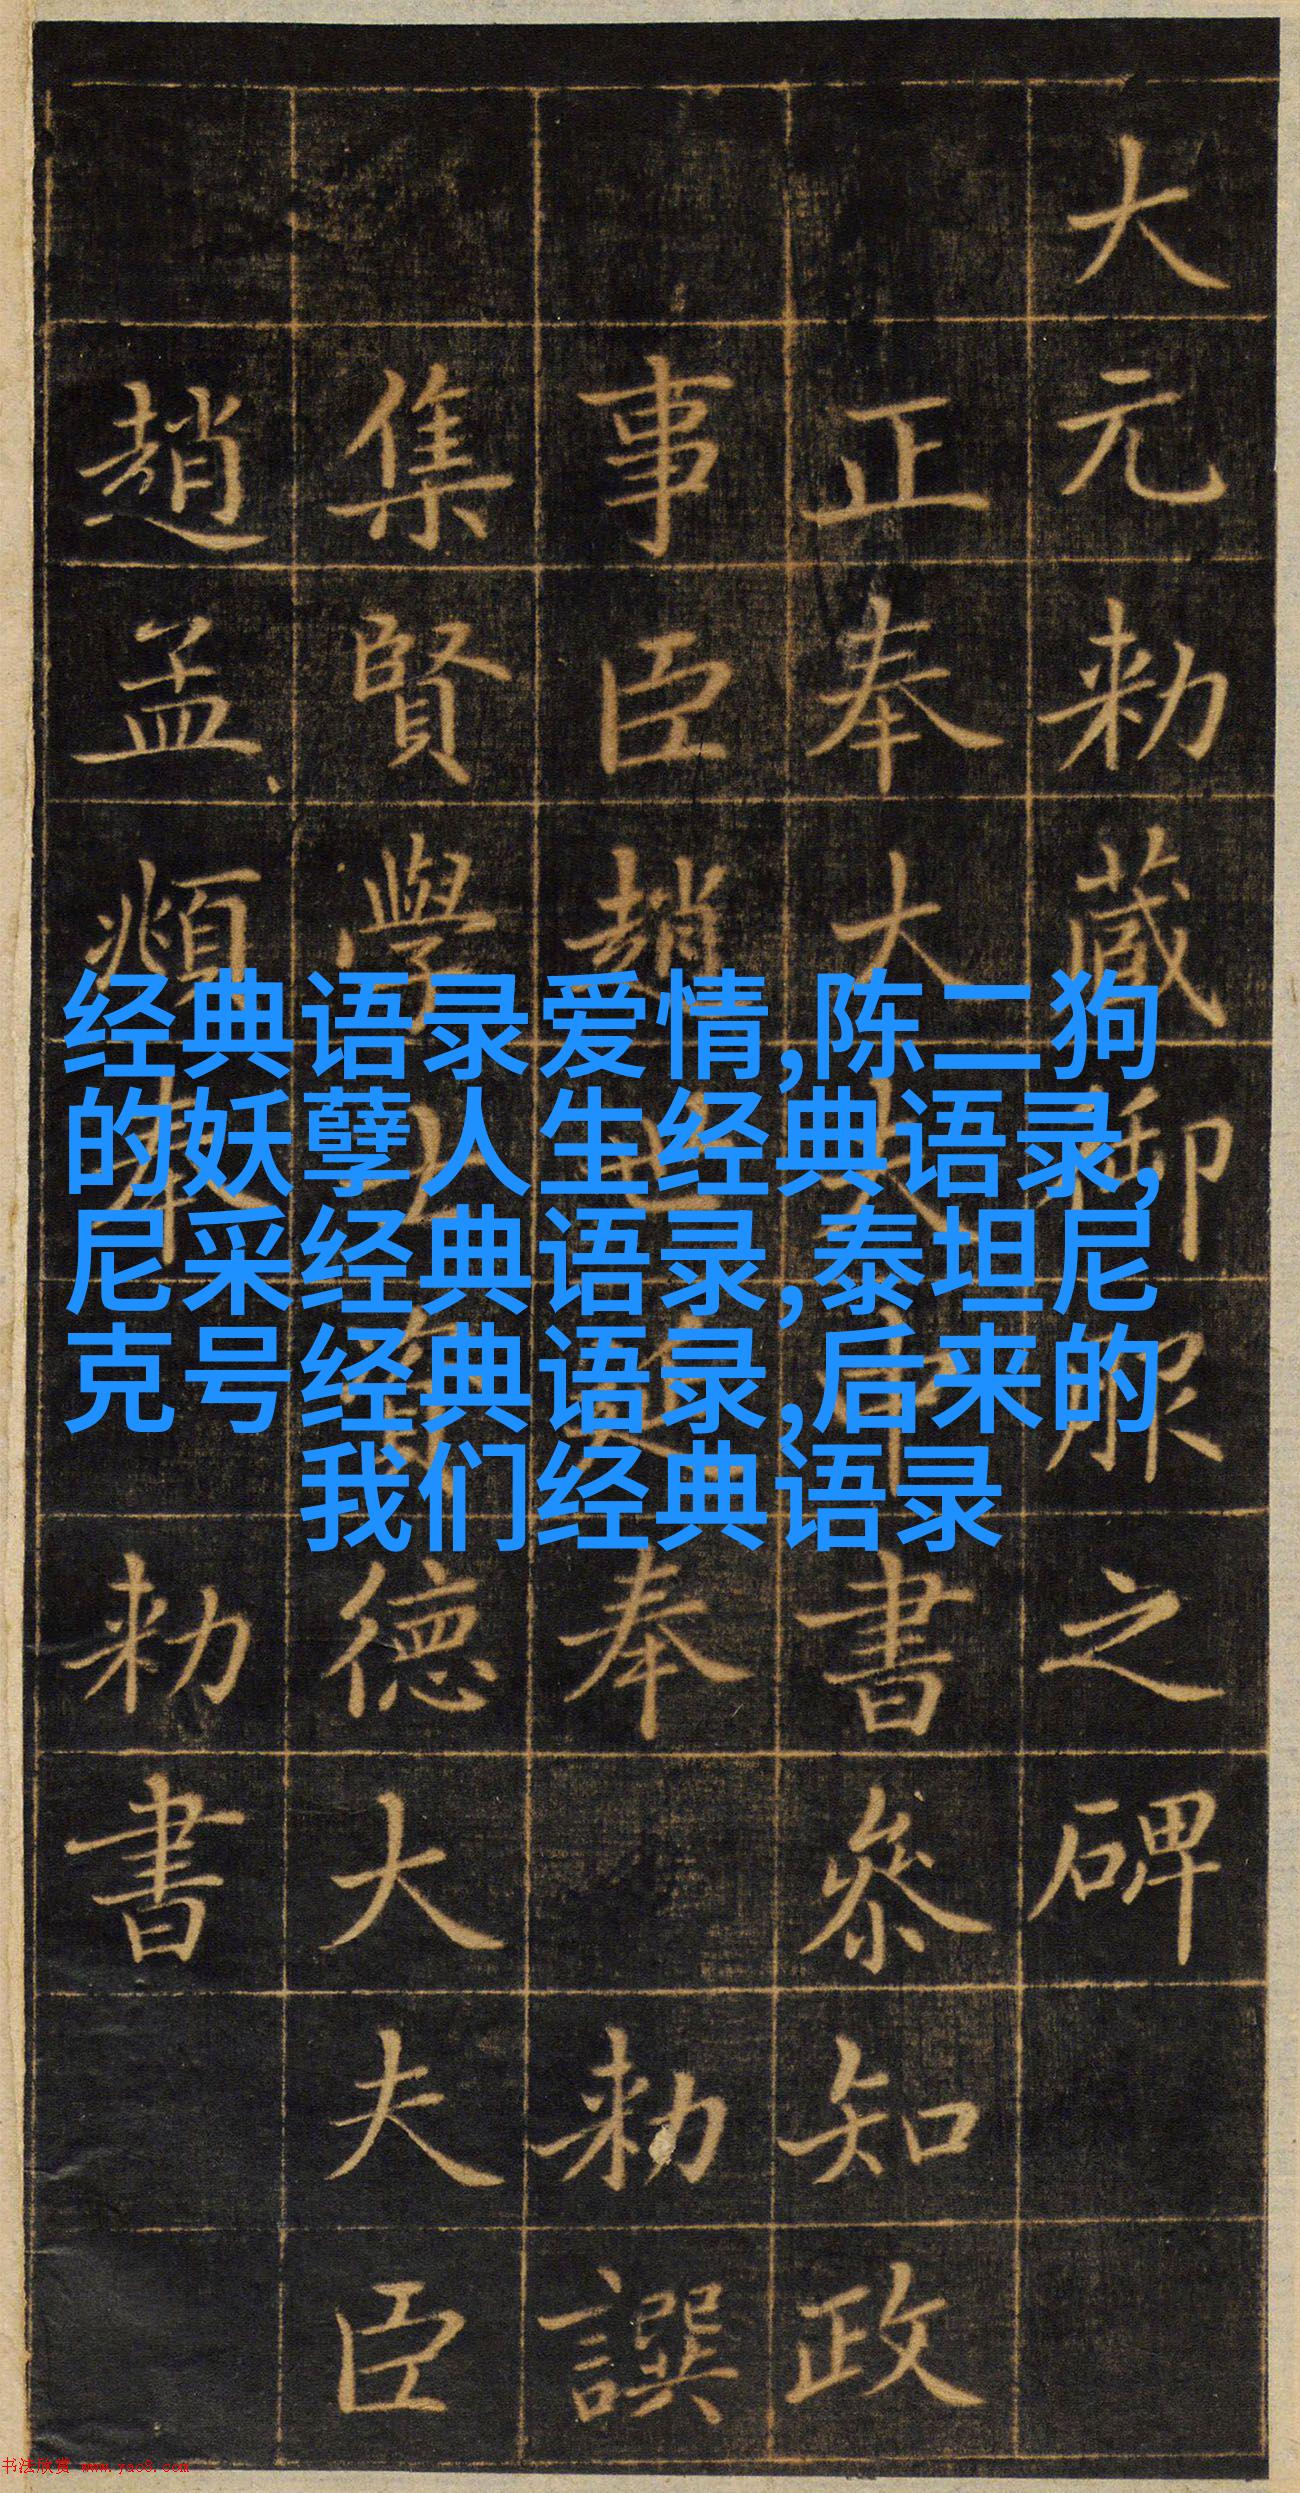 大元勑藏御服之碑
正奉大夫中書參知政
事臣趙世延奉勑譔
集賢學士資德大夫臣
趙孟頫奉勑書
经典语录爱情,陈二狗
的妖孽人生经典语录,
尼采经典语录,泰坦尼
克号经典语录,后来的
我们经典语录
书法欣赏 www.yac8.com